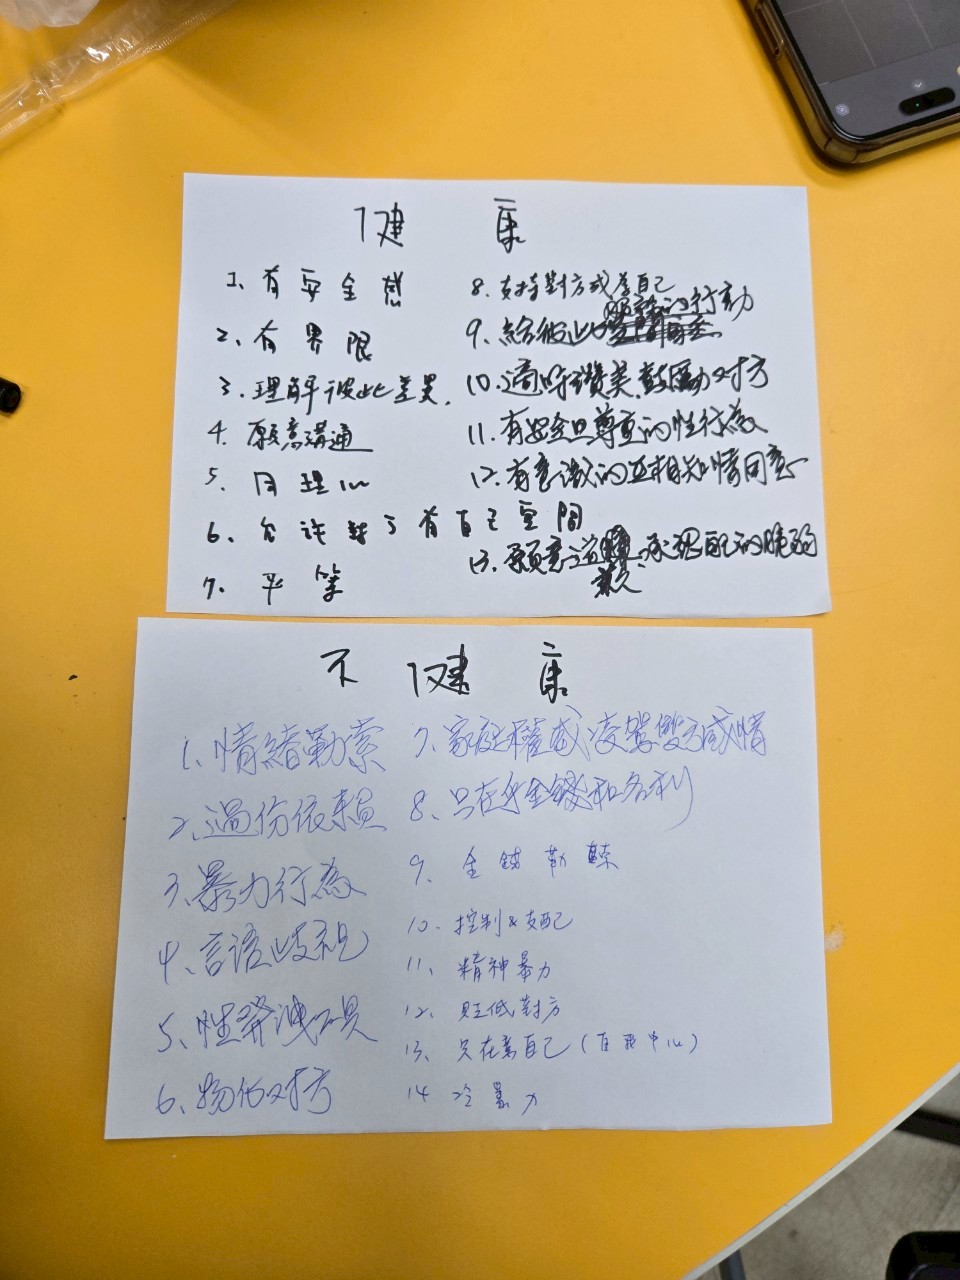 健康
1、有安全感
2、有界限
3.理解彼此差異.
4.願意溝通
5.同理心
6、允許對方有自己空間
7、平等
8.支持對方成為自己
9.給彼此的行動
10.適時讚美.鼓勵对方
11.有安全且尊重的性行為
12.有意識的互相知情同意
13.願意道歉.承認自己的脆弱
不健康
1、情緒勒索
2、過份依賴
3、暴力行為
4、言語歧視
5、性發洩工具
6、物化对方
7、家庭權威凌駕雙方感情
8、只在乎金錢和名利
9、金錢勒索
10、控制&支配
11、精神暴力
12、貶低對方
13、只在意自己(自我中心)
14 冷暴力